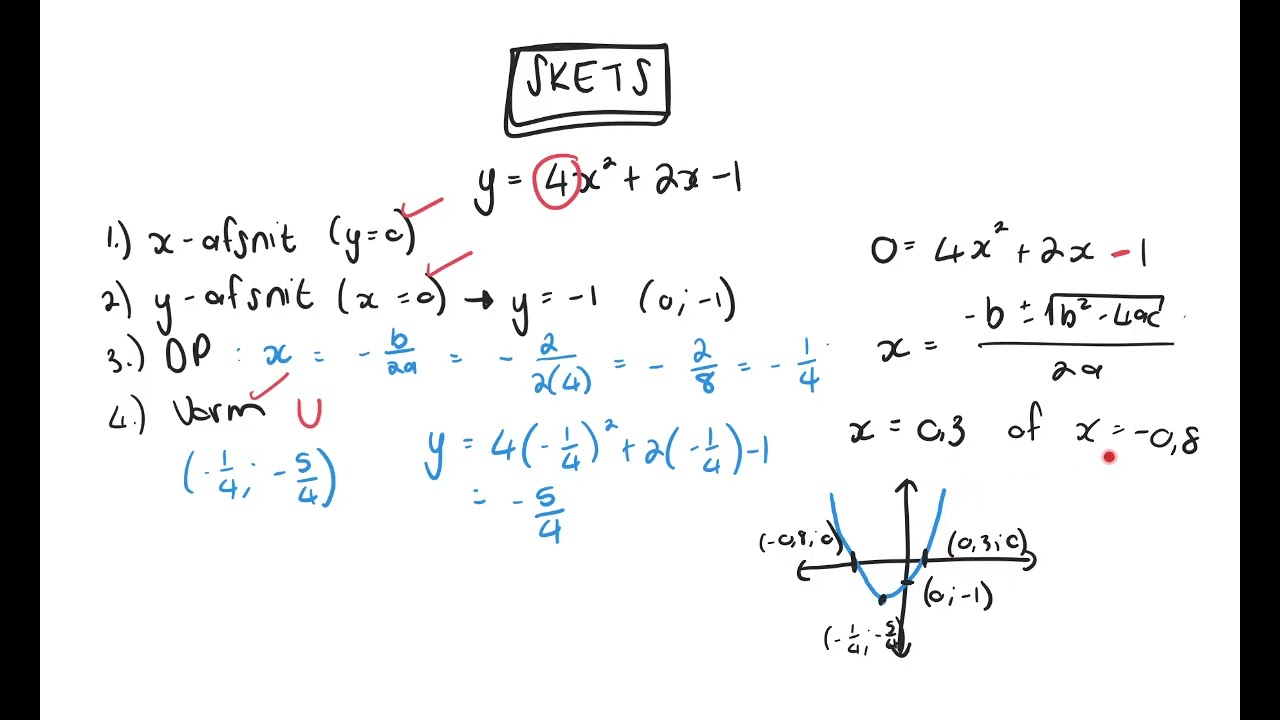 SKETS
y = 4x² + 2x - 1
1.) x-afsnit (y=0)
2) y-afsnit (x=0) → y = -1 (0; -1)
3.) DP : x = -b/2a = -2/2(4) = -2/8 = -1/4
4.) Vorm U
(-1/4; -5/4)
y = 4(-1/4)² + 2(-1/4) - 1
= -5/4
0 = 4x² + 2x - 1
x = -b ± √b² - 4ac / 2a
x = 0,3 of x = -0,8
(-0,8; 0) (0,3; 0)
(0; -1)
(-1/4; -5/4)